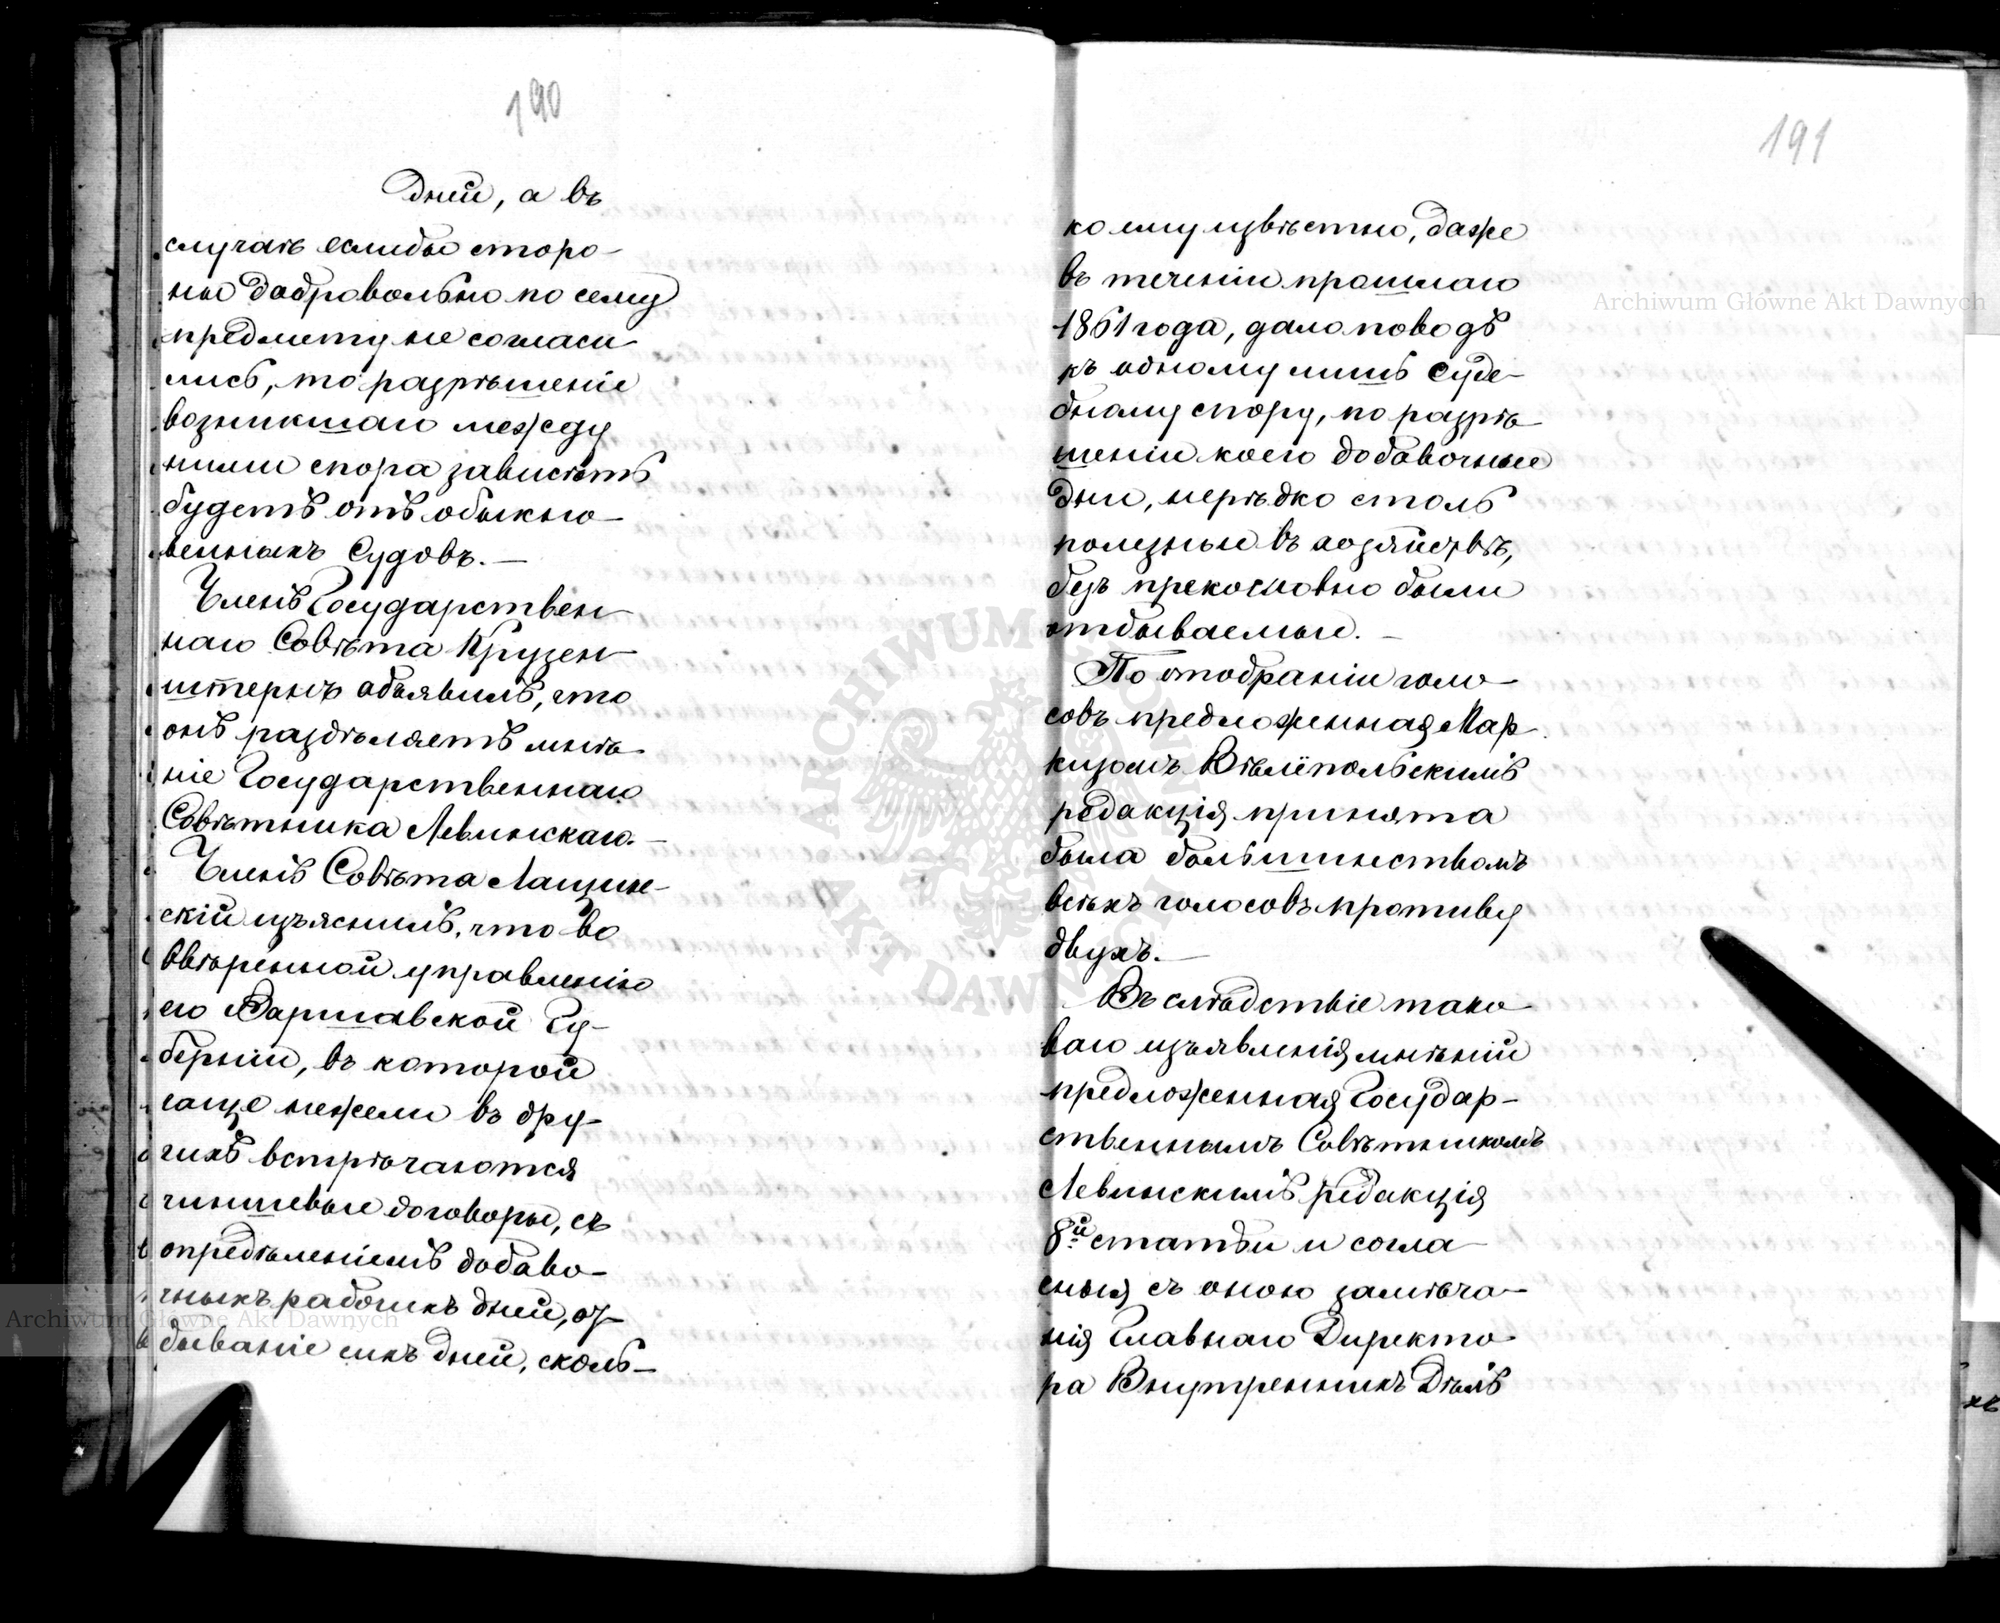 190
Дней, а въ
случаѣ еслибы сторо-
ны добровольно по сему
предмету не согласи
лись, то разрѣшеніе
возникшаго между
ними спора зависѣть
будетъ отъ обыкно-
венныхъ Судовъ. —
Членъ Государствен
наго Совѣта Крузен
штернъ объявилъ, что
онъ раздѣляетъ мнѣ-
ніе Государственнаго
Совѣтника Левинскаго. —
Членъ Совѣта Лащин-
скій изъяснилъ, что во
ввѣренной управленію
его Варшавской Гу-
берніи, въ которой
чаще нежели въ дру-
гихъ встрѣчаются
чиншевые договоры, съ
опредѣленіемъ добаво-
чныхъ рабочихъ дней, от-
бываніе сихъ дней, сколь-
191
ко ему извѣстно, даже
въ теченіи прошлаго
1861 года, дало поводъ
къ одному лишь Суде-
бному спору, по разрѣ-
шеніи коего добавочные
дни, нерѣдко столь
полезные въ хозяйствѣ,
безъ прекословно были
отбываемы. —
По отобраніи голо-
совъ предложенная Мар-
кизомъ Вѣлёпольскимъ
редакція принята
была большинствомъ
всѣхъ голосовъ противу
двухъ. —
Въ слѣдствіе тако-
ваго изъявленія мнѣній
предложенная Государ-
ственнымъ Совѣтникомъ
Левинскимъ редакція
8й статьи и согла-
сныя съ оною замѣча-
нія Главнаго Директо-
ра Внутреннихъ Дѣлъ
хъ
Archiwum Główne Akt Dawnych
Archiwum Główne Akt Dawnych
ARCHIWUM GŁÓWNE AKT DAWNYCH